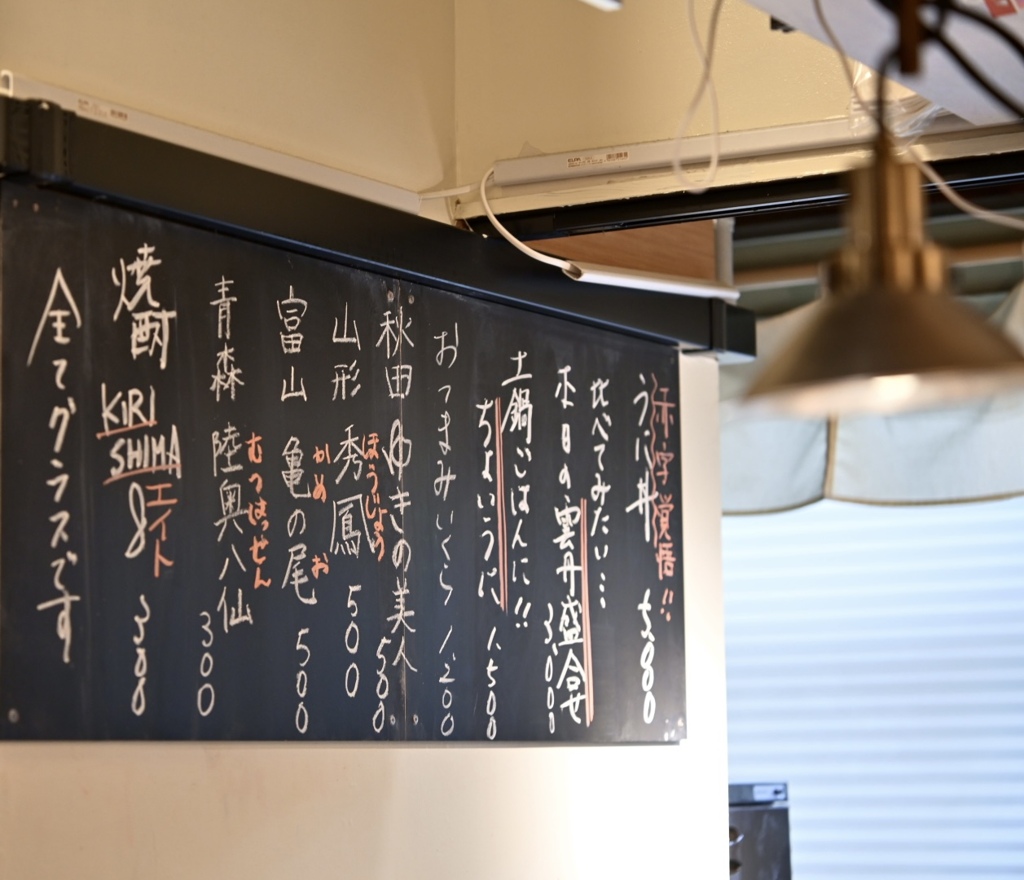 赤字覚悟!!
うに丼 5,000
比べてみたい…
本日の雲丹盛合せ 3,000
土鍋ごはんに!!
ちょいうに 1,500
おつまみいくら 1,200
秋田 ゆきの美人 500
ほうじょう
山形 秀鳳 500
かめ お
富山 亀の尾 500
むつはっせん
青森 陸奥八仙 300
焼酎 KIRISHIMA 8 300
エイト
全てグラスです